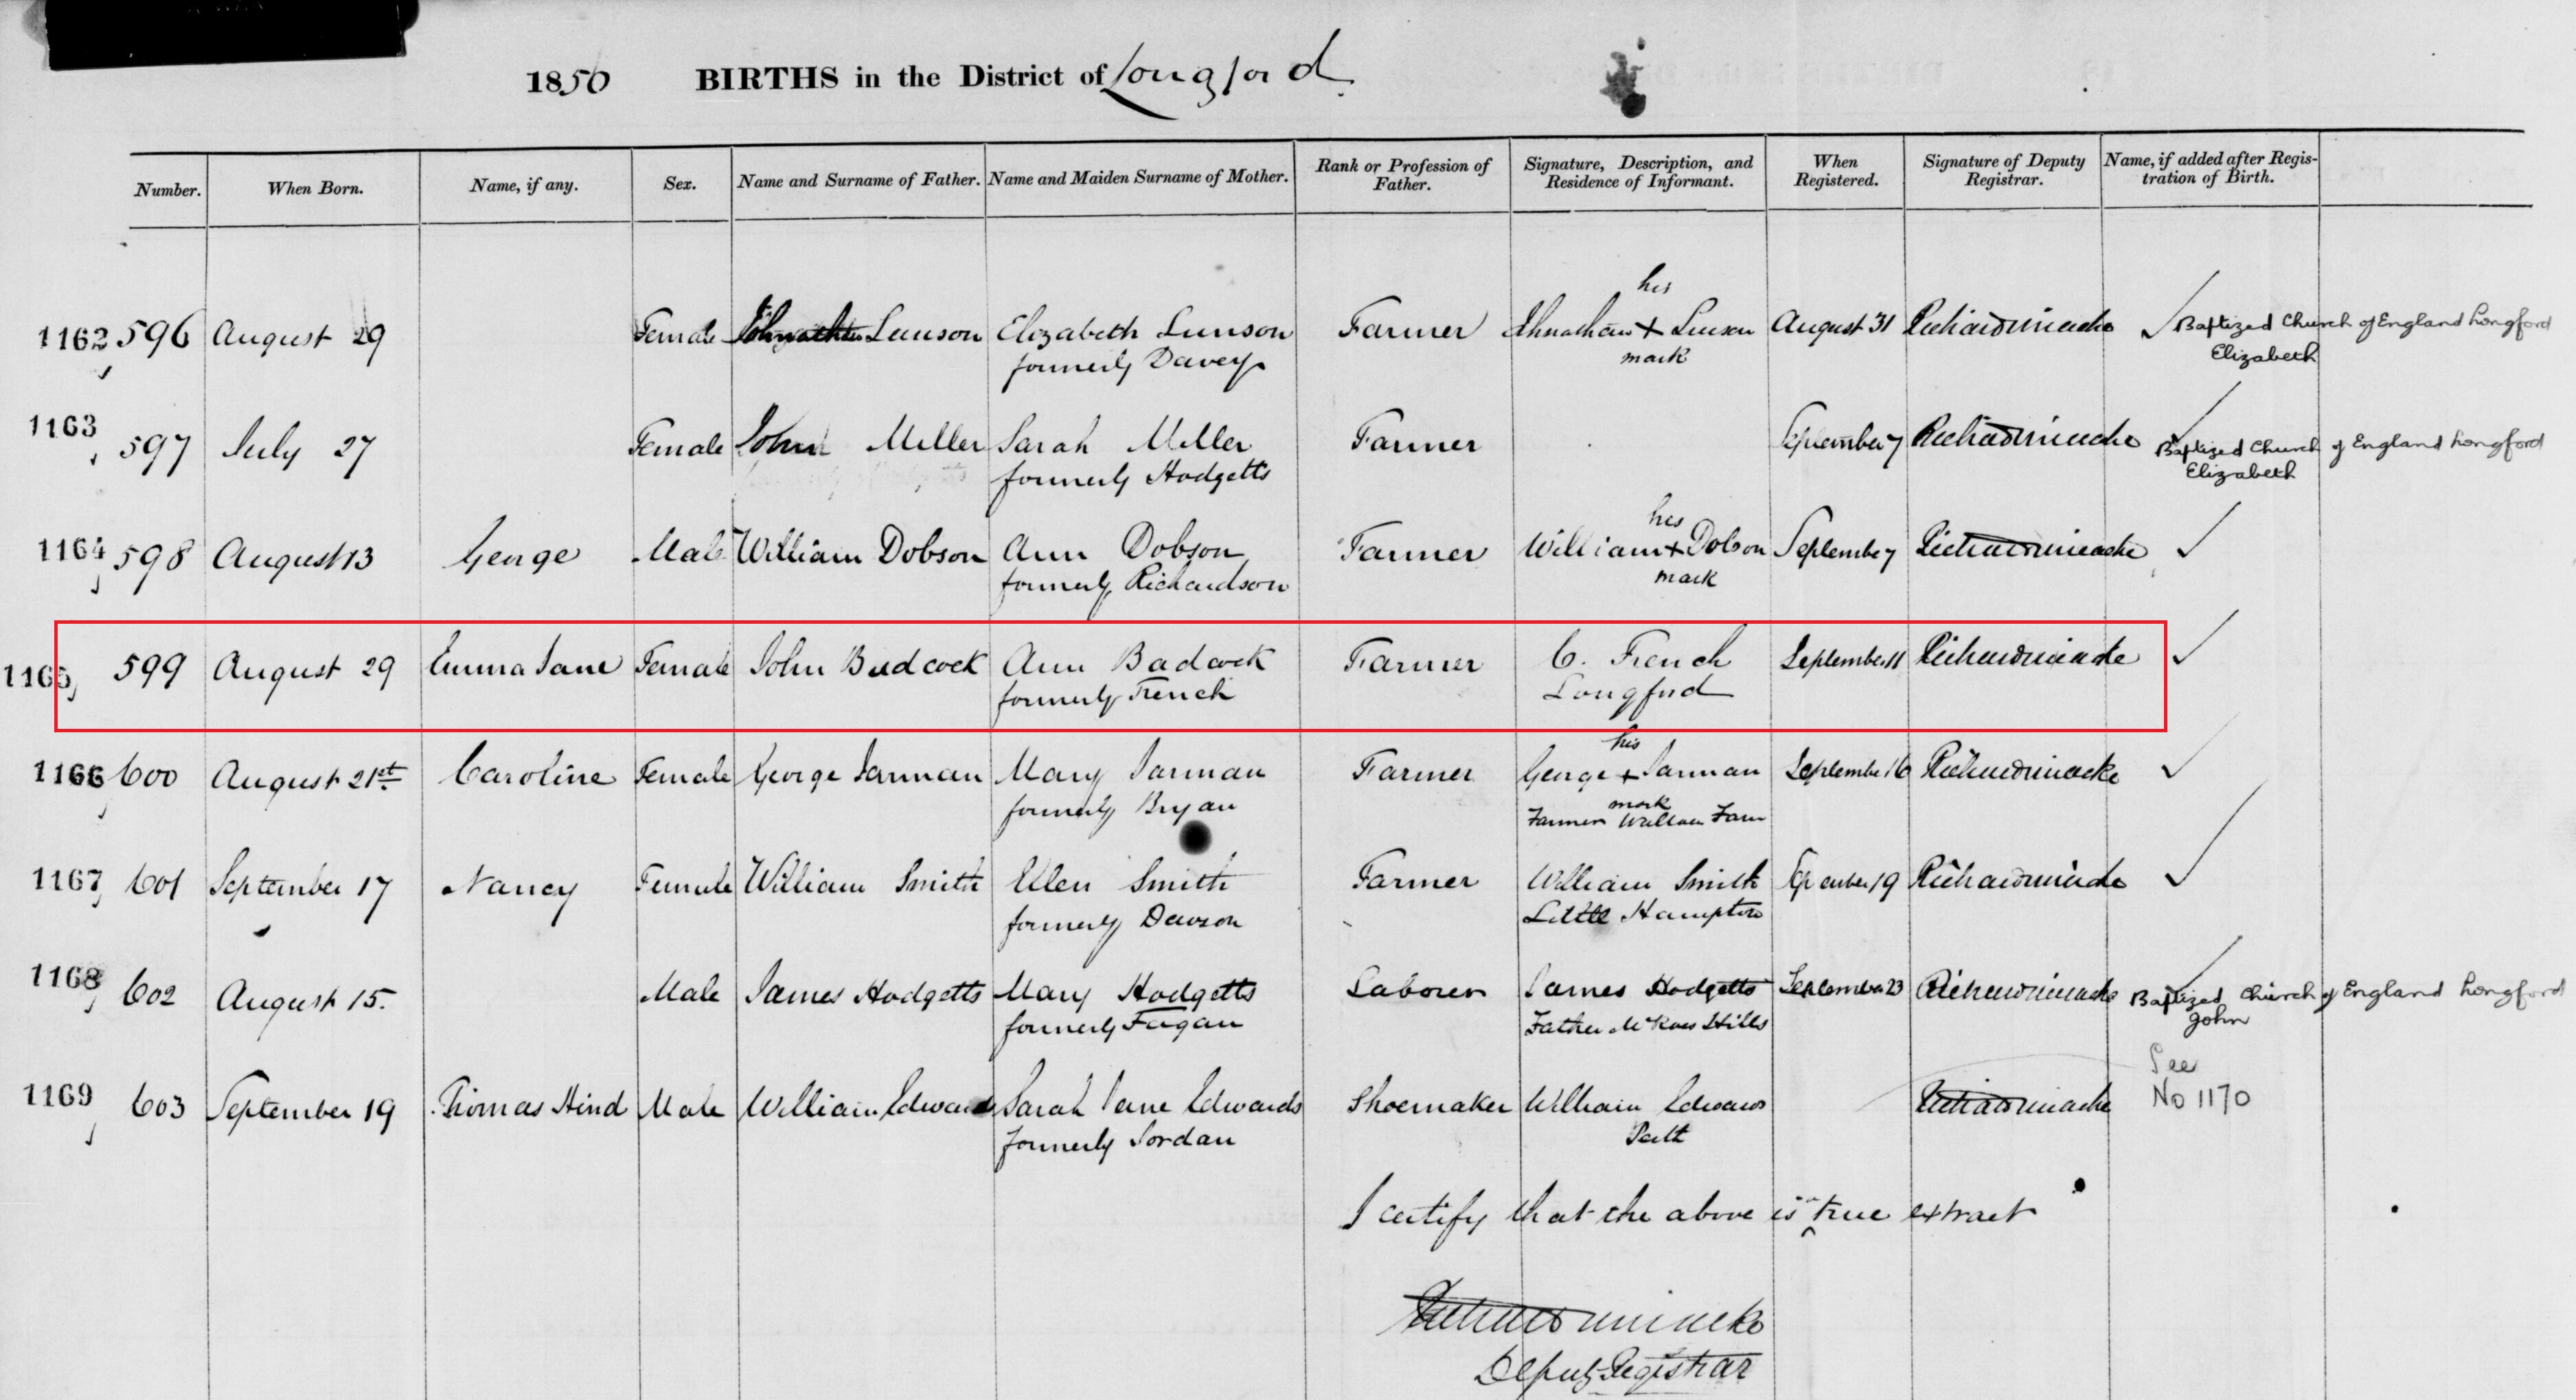 1850 BIRTHS in the District of Longford
Number. When Born. Name, if any. Sex. Name and Surname of Father. Name and Maiden Surname of Mother. Rank or Profession of Father. Signature, Description, and Residence of Informant. When Registered. Signature of Deputy Registrar. Name, if added after Registration of Birth.
his
1162 596 August 29 Female Lunson Elizabeth Lunson Farmer + Lunson August 31 Baptized Church of England Longford
formerly Davey mark Elizabeth
1163 597 July 27 Female John Miller Sarah Miller Farmer September 7 Baptized Church of England Longford
formerly Hodgetts Elizabeth
his
1164 598 August 13 George Male William Dobson Ann Dobson Farmer William + Dobson September 7
formerly Richardson mark
1165 599 August 29 Emma Jane Female John Badcock Ann Badcock Farmer C. French September 11
formerly French Longford
his
1166 600 August 21st Caroline Female George Jarman Mary Jarman Farmer George + Jarman September 16
formerly Bryan mark
Farmer Farm
1167 601 September 17 Nancy Female William Smith Ellen Smith Farmer William Smith September 19
formerly Dawson Little Hampton
1168 602 August 15. Male James Hodgetts Mary Hodgetts Laborer James Hodgetts September 23 Baptized Church of England Longford
formerly Fagan Father Hills John
See
1169 603 September 19 Thomas Hind Male William Edwards Sarah Jane Edwards Shoemaker William Edwards No 1170
formerly Jordan
I certify that the above is a true extract
Deputy Registrar